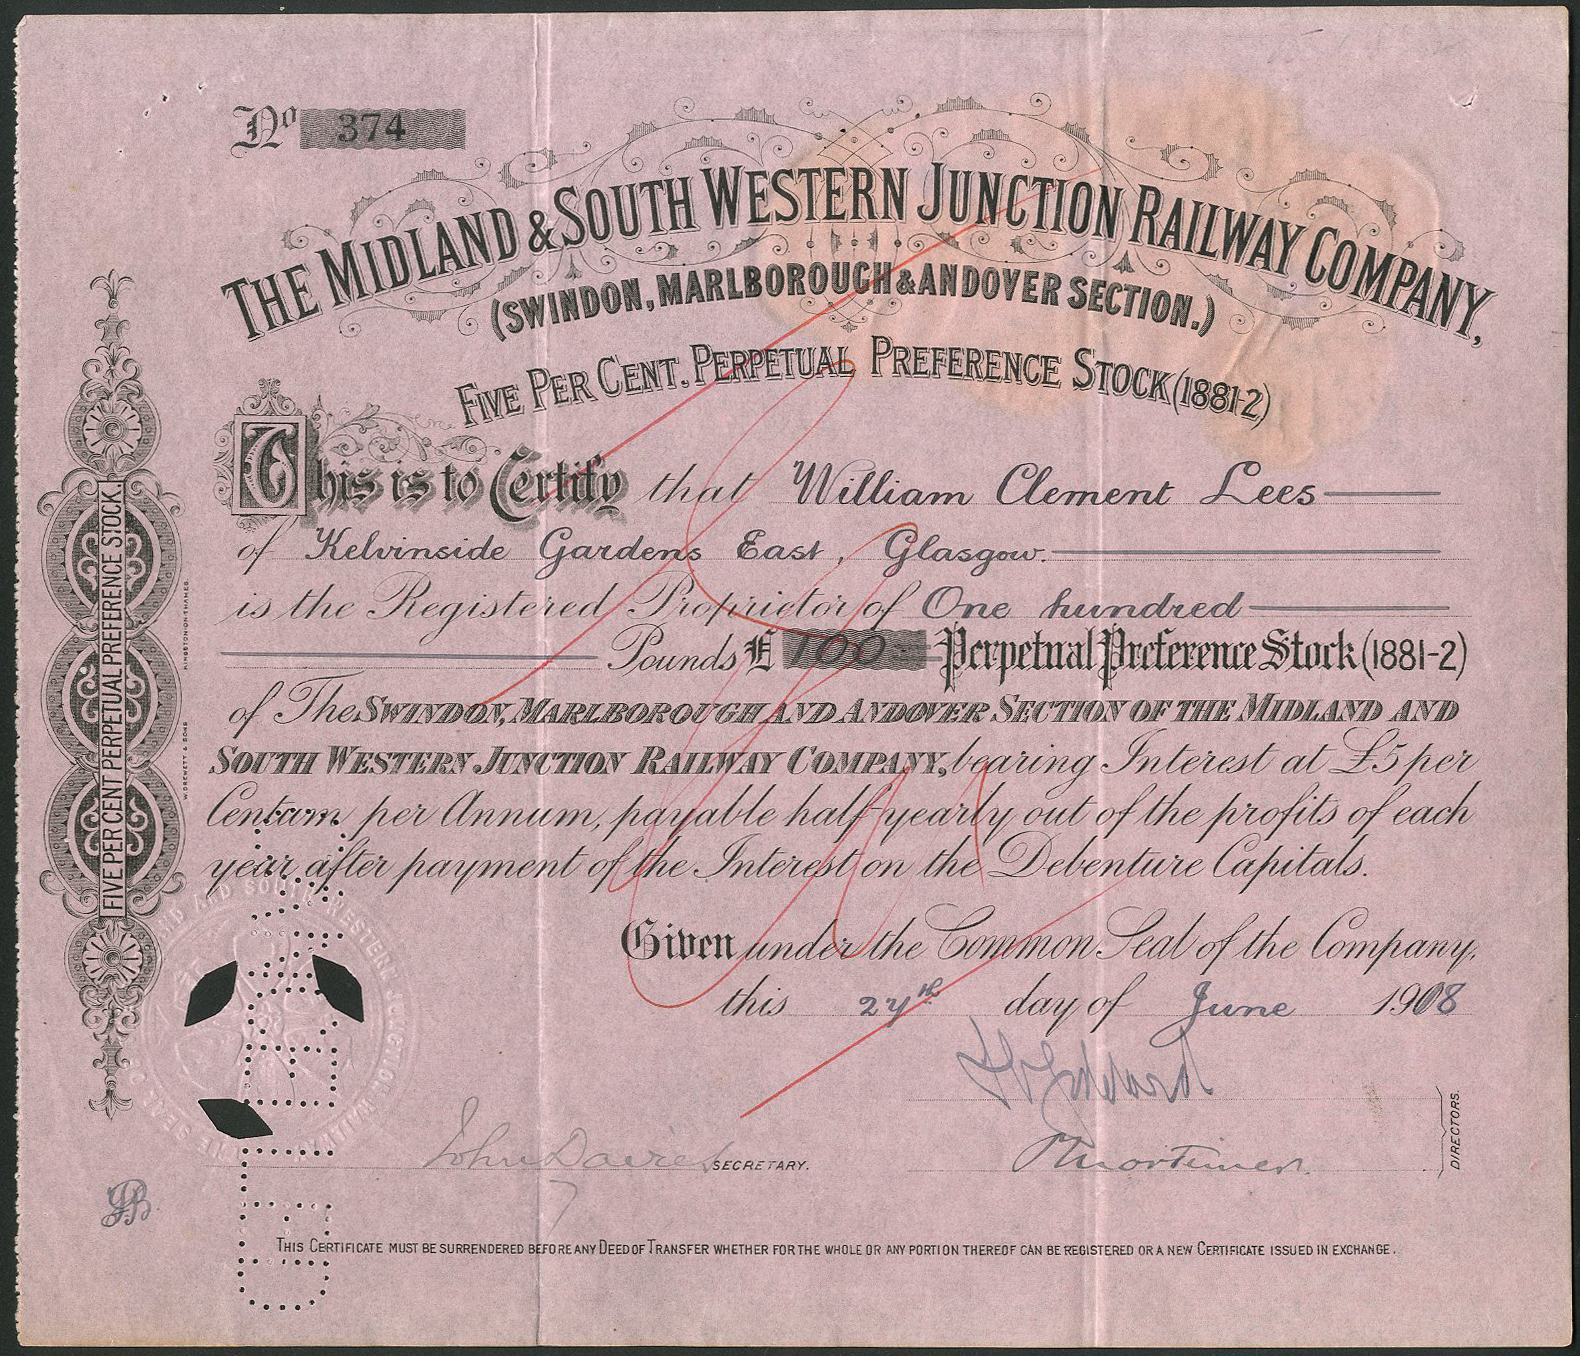 No 374
THE MIDLAND & SOUTH WESTERN JUNCTION RAILWAY COMPANY,
(SWINDON, MARLBOROUGH & ANDOVER SECTION.)
FIVE PER CENT. PERPETUAL PREFERENCE STOCK (1881-2)
This is to Certify that William Clement Lees
of Kelvinside Gardens East, Glasgow.
is the Registered Proprietor of One hundred
Pounds £ 100 Perpetual Preference Stock (1881-2)
of The SWINDON, MARLBOROUGH AND ANDOVER SECTION OF THE MIDLAND AND
SOUTH WESTERN JUNCTION RAILWAY COMPANY, bearing Interest at £5 per
Centum per Annum, payable half-yearly out of the profits of each
year after payment of the Interest on the Debenture Capitals.
Given under the Common Seal of the Company,
this 24th day of June 1908
DIRECTORS.
John Davies SECRETARY.
P Mortimer
THIS CERTIFICATE MUST BE SURRENDERED BEFORE ANY DEED OF TRANSFER WHETHER FOR THE WHOLE OR ANY PORTION THEREOF CAN BE REGISTERED OR A NEW CERTIFICATE ISSUED IN EXCHANGE.
FIVE PER CENT PERPETUAL PREFERENCE STOCK.
W. DREWETT & SONS KINGSTON-ON-THAMES.